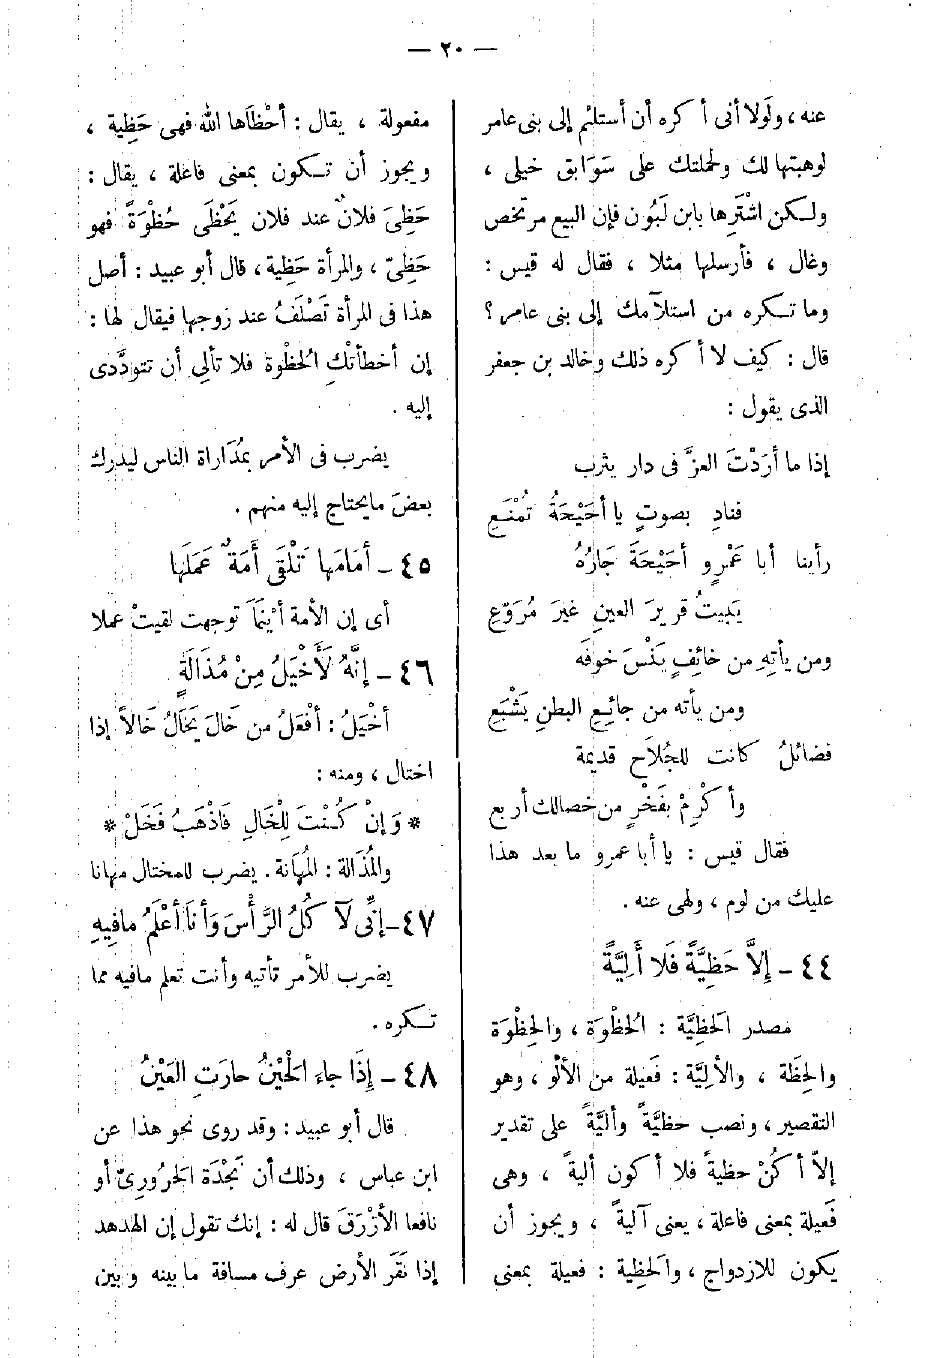 — ٢٠ —
عنه، ولولا أنى أكره أن أستليم إلى بنى عامر
لوهبتها لك ولحملتك على سَوَابق خيلى ،
ولكن اشْتَرِها بابن لَبُون فإن البيع مرتخص
وغال ، فأرسلها مثلا ، فقال له قيس :
وما تكره من استلآمك إلى بنى عامر ؟
قال : كيف لا أكره ذلك وخالد بن جعفر
الذى يقول :
إذا ما أرَدْتَ العزَّ فى دار يثرب
فنادِ بصوتٍ يا أحَيْحَةُ تُمْنَعِ
رأينا أبا عَمْرٍو أحَيْحَةَ جَارُهُ
يَبِيتُ قريرَ العينِ غيرَ مُرَوَّعِ
ومن يأتهِ من خائِفٍ يَنْسَ خوفَه
ومن يأته من جائِعِ البطنِ يَشْبَعِ
فضائلُ كانت للجُلاَح قديمة
وأكْرِمْ بفَخْرٍ من خصالك أربع
فقال قيس : يا أبا عمرو ما بعد هذا
عليك من لوم ، ولهى عنه .
٤٤ – إِلاَّ حَظِيَّةً فَلاَ أَلِيَّةً
مصدر الَحظِيَّة : الُحظْوَة ، والِحظْوَة
والِحظَة ، والألِيَّة : فَعيلة من الألْو ، وهو
التقصير ، ونصب حظيَّةً وأليَّةً على تقدير
إلاّ أكُنْ حظيةً فلا أكون أليةً ، وهى
فَعيلة بمعنى فاعلة ، يعنى آليةً ، ويجوز أن
يكون للازدواج ، والَحظِية : فعيلة بمعنى
مفعولة ، يقال : أحْظَاها الله فهى حَظِية ،
ويجوز أن تكون بمعنى فاعلة ، يقال :
حَظِىَ فلانٌ عند فلان يَحْظَى حُظْوَةً فهو
حَظِىّ ، والمرأة حَظِية ، قال أبو عبيد : أصل
هذا فى المرأة تَصْلَفُ عند زوجها فيقال لها :
إن أخطأتْكِ الُحظْوة فلا تألِى أن تتودَّدى
إليه .
يضرب فى الأمر بمُدَاراة الناس ليدرك
بعضَ ما يحتاج إليه منهم .
٤٥ – أمَامَها تَلْقَى أَمَةٌ عَمَلَهَا
أى إن الأمة أيْنَمَا توجهت لقيتْ عملا
٤٦ – إنَّهُ لَأَخْيَلُ مِنْ مُذَالَةٍ
أخْيَلُ : أفْعَلُ من خَالَ يَخَالُ خَالاً إذا
اختال ، ومنه :
* وَإنْ كُنْتَ لِلْخَالِ فَاذْهَبْ فَخَلْ *
والُمذَالة : الُمهَانة . يضرب للمختال مهانا
٤٧ – إنِّى لآ كُلُ الرَّأْسَ وَأنَا أعْلَمُ ما فِيهِ
يضرب للأمر تأتيه وأنت تعلم ما فيه مما
تكره .
٤٨ – إِذَا جاءَ الْحَيْنُ حارَتِ العَيْنُ
قال أبو عبيد : وقد روى نحو هذا عن
ابن عباس ، وذلك أن نَجْدَة الحَرُورِىّ أو
نافعا الأزْرَقَ قال له : إنك تقول إن الهدهد
إذا نَقَر الأرض عرف مسافة ما بينه وبين